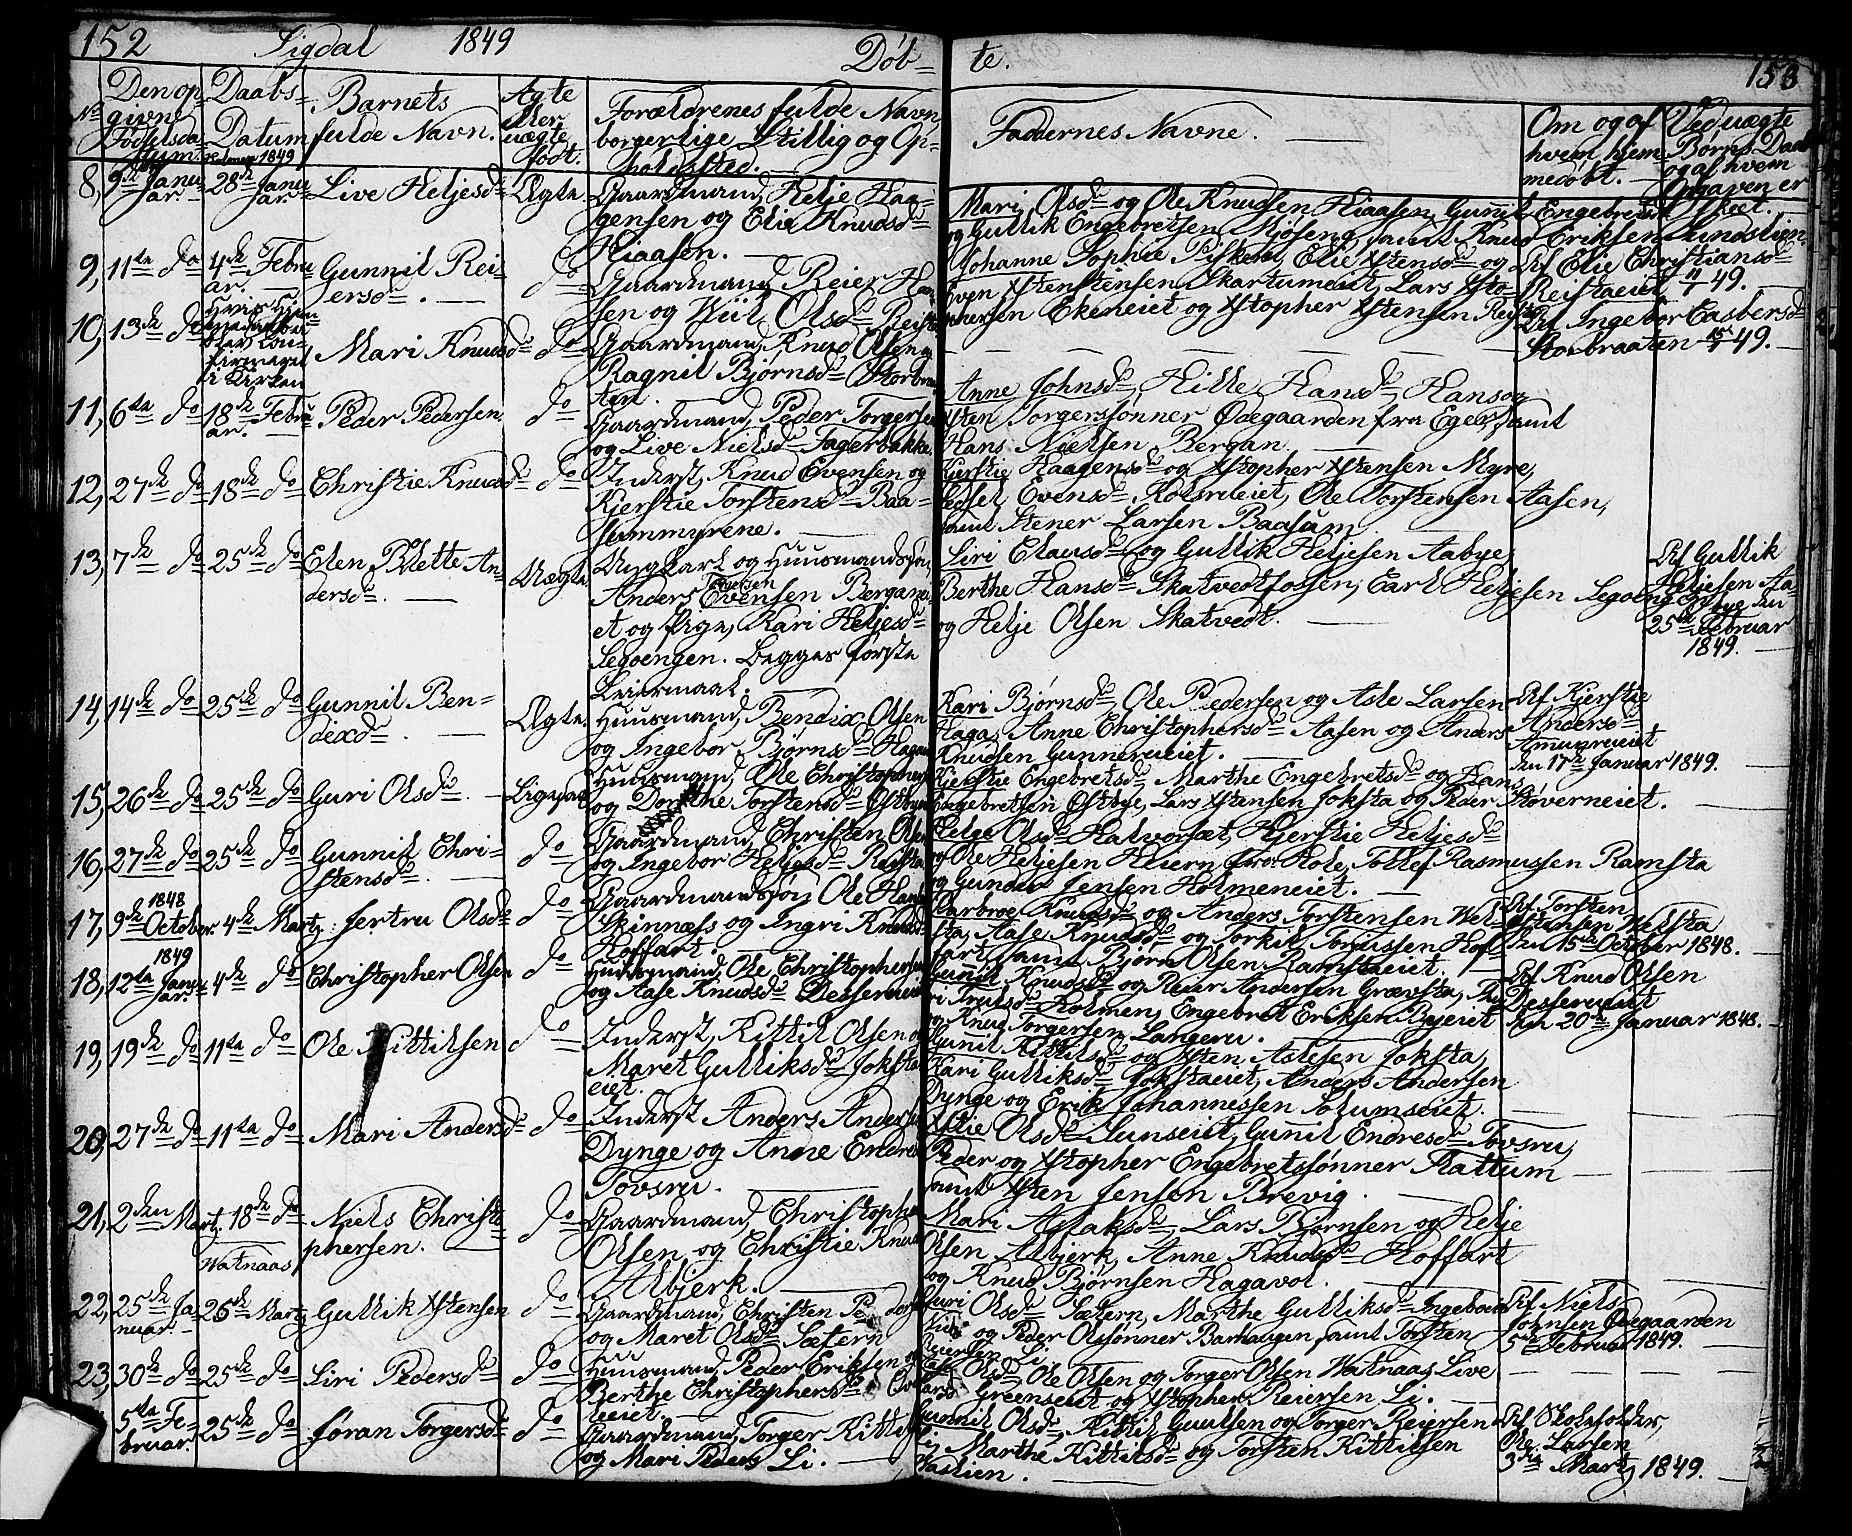 152 Sigdal 1849 Døb- te. 153
No
Den op-
givne
Fødselsda-
tum.
Daabs-
Datum
1849
Barnets
fulde Navn.
Ægte
eller
uægte
født.
Forældrenes fulde Navn
borgerlige Stillig og Op-
holdssted.
Faddernes Navne.
Om og af
hvem hjem
medøbt.
Ved uægte
Børns Daab
og af hvem
Opgaven er
skeet.
8, 9de Janu-
ar. 28de Janu-
ar. Live Heljesdr Ægte. Gaardmand, Helje Haa-
gensen og Elie Knudsdr
Kiaasen.
Mari Olsdr og Ole Knudsen Kiaasen, Gunnil Engebretsdr
og Gullik Engebretsen Mjøseng samt Knud Eriksen Lundstien
9, 11te do 4de Febru-
ar. Gunnil Rei-
ersdr. do Gaardmand Reier Han-
sen og Wiil Olsdr Reista
Johanne Sophie Pisken, Elie Xstensdr og
Even Xstenstensen Skartumeiet, Lars Xsto-
phersen Ekeneiet og Xstopher Xstensen Reista
Af Elie Christiansdr
Reistaeiet 11/1 49.
10, 13de do
i Kirken
Mari Knudsdr do Gaardmand, Knud Olsen og
Ragnil Bjørnsdr Storbraa-
ten.
Af Ingebor Casbersdr
Storbraaten 15/1 49.
11, 6te do 18de Febru-
ar. Peder Pedersen do Gaardmand, Peder Torgersen
og Live Nielsdr Fagerbakke.
Anne Johnsdr, Hille Hansdr, Hans og
Xsten Torgerssønner Ødegaarden fra Eger, samt
Hans Nielsen Bergan.
12, 27de do 18de do Christie Knudsdr do Inderst, Knud Evensen og
Kjerstie Torstensdr Baa-
summyrene.
Kjerstie Haagensdr og Xstopher Xstensen Myre,
Sidsel Evensdr Kolsrueiet, Ole Torstensen Aasen,
samt Stener Larsen Baasum
13, 7de do 25de do Elen Bolette An-
dersdr. Uægte Ungkarl og Huusmandssøn,
Anders Evensen Bergane-
et og Pige, Kari Heljesdr
Segoengen. Begges første
Leiermaal.
Siri Clausdr og Gullik Heljesen Aabye,
Berthe Hansdr Skatvedtfossen, Carl Heljesen Segoeng
og Helje Olsen Skatvedt.
Af Gullik
Heljesen Aa-
bye den
25de Februar
1849.
14, 14de do 25de do Gunnil Ben-
dixdr. Ægte. Huusmand, Bendix Olsen
og Ingebor Bjørnsdr Hagan
Kari Bjørnsdr, Ole Pedersen og Asle Larsen
Haga, Anne Christophersdr Aasen og Anders
Knudsen Gunnerueiet.
Af Kjerstie
Andersdr
Amunrueiet
den 17de Januar 1849.
15, 26de do 25de do Guri Olsdr. Ligesaa Huusmand, Ole Christophersen
og Dorthe Torstensdr Østbye
Kjerstie Engebretsdr, Marthe Engebretsdr og Hans
Engebretsen Østbye, Lars Xstensen Joksta og Peder Støverneiet.
16, 27de do 25de do Gunnil Chri-
stensdr. do Gaardmand, Christen Olsen
og Ingebor Heljesdr Ramsta
Helge Olsdr Halvorsæt, Kjerstie Heljesdr
og Ole Heljesen Kiern, fra Hole, Tollef Rasmussen Ramsta
og Gunder Jensen Holmeneiet.
17, 1848
9de October. 4de Martz Jertru Olsdr do Gaardmandssøn, Ole Hansen
Skinnæss og Ingri Knudsdr
Hoffart.
Barbroe Knudsdr og Anders Torstensen Wel-
sta, Aase Knudsdr og Torkil Tomassen Hof-
fart samt Bjørn Olsen Ramstaeiet.
Af Torsten
Welsta
den 15de October 1848.
18, 1849
12te Janu-
ar. 4de do Christopher Olsen do Huusmand, Ole Christophersen
og Aase Knudsdr Desserueiet
Gunil Knudsdr og Reier Andersen Grævsta,
Holmen, Engebret Eriksen Byeiet
og Knud Torgersen Langeru.
Af Knud Olsen
Desserueiet
den 20de Januar 1848.
19, 19de do 11te do Ole Kittilsen do Inderst, Kittil Olsen og
Maret Gulliksdr Joksta-
eiet.
Gunil Kittilsdr og Xsten Aslesen Joksta,
Kari Gulliksdr Jokstaeiet, Anders Andersen
Dynge og Erik Johannessen Solumseiet.
20, 27de do 11te do Mari Andersdr do Inderst Anders Andersen
Dynge og Anne Endresdr
Tovsru.
Xstie Olsdr Lunseiet, Gunil Endresdr Tovsru,
Peder og Xstopher Engebretssønner Flattum
samt Xsten Jensen Brevig.
21, 2den Martz. 18de do
Watnaas
Niels Christo-
phersen. do Gaardmand, Christopher
Olsen og Christie Knudsdr
Albjerk.
Mari Aslaksdr, Lars Bjørnsen og Helje
Olsen Albjerk, Anne Knudsdr Hoffart
og Knud Bjørnsen Hagavol.
22, 25de Ja-
nuar. 25de Martz Gullik Xstensen do Gaardmand, Christen Pedersen
og Maret Olsdr Sætern
Guri Olsdr Sætern, Marthe Gulliksdr Ingeboe-
og Peder Olssønner Barhaugen samt Torsten
Reiersen Li.
Af Niels
Johnsen Ødegaarden
5te Februar 1849.
23, 30de do 25de do Siri Pedersdr do Huusmand, Peder Eriksen og
Berthe Christophersdr
eiet.
Olsdr, Ole Olsen og Torger Olsen Watnaas, Live
Greenseiet og Xstopher Reiersen Li.
5te Fe-
bruar. 25de do Jøran Torgersdr do Gaardmand, Torger Kittilsen
og Mari Pedersdr Li.
Gunnil Olsdr, Kittil Guulsen og Torger Reiersen
Li, Marthe Kittilsdr og Torsten Kittilsen
Haslien.
Af Skoleholder,
Ole Larsen
3die Martz 1849.